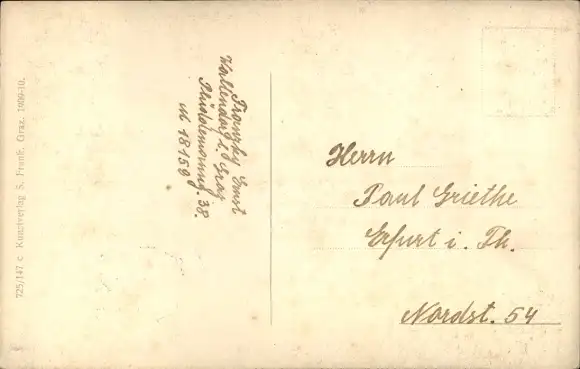 725/147 c Kunstverlag S. Frank, Graz. 1909-10.
Franzky Ernst
Waltendorf b. Graz
38.
N 18159
Herrn
Paul Griethe
Erfurt i. Th.
Nordst. 54